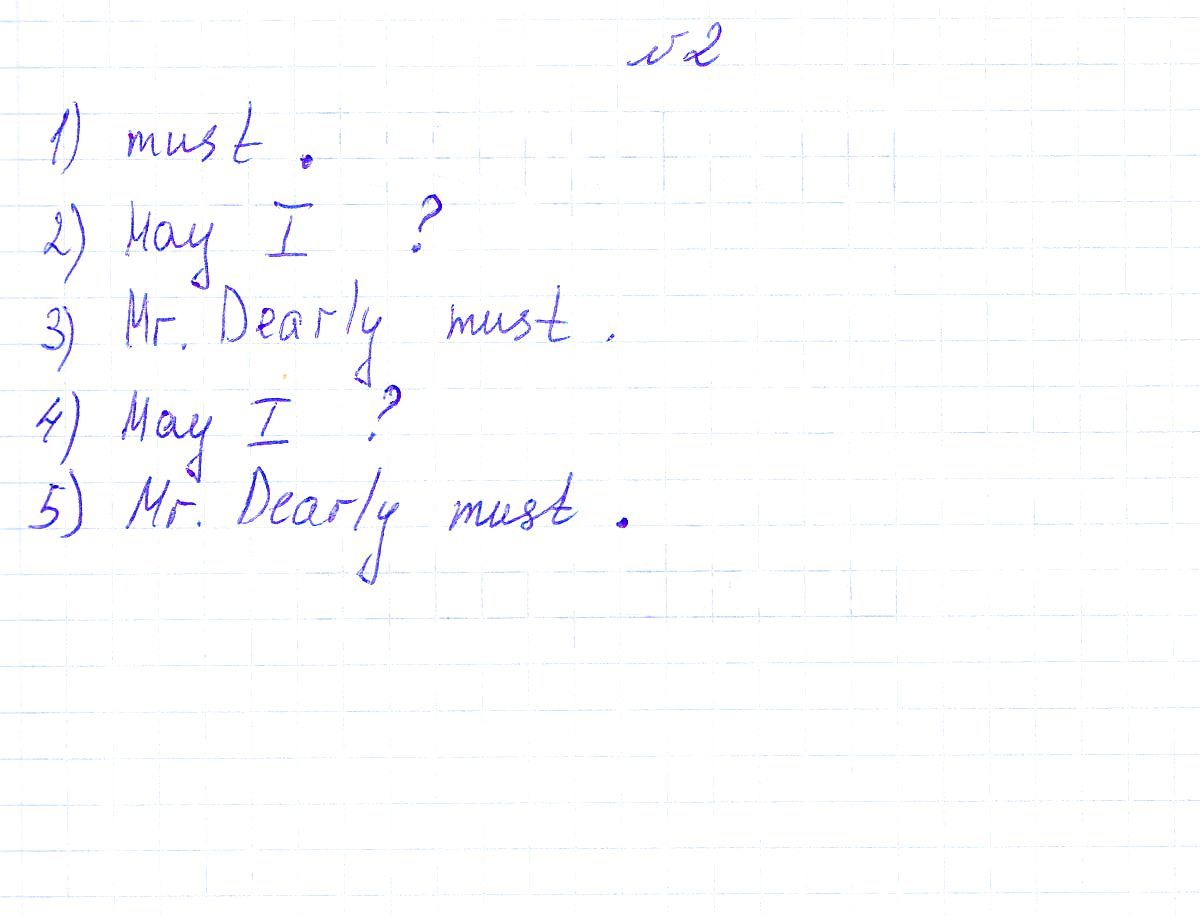 v2
1) must.
2) May I ?
3) Mr. Dearly must.
4) May I ?
5) Mr. Dearly must.